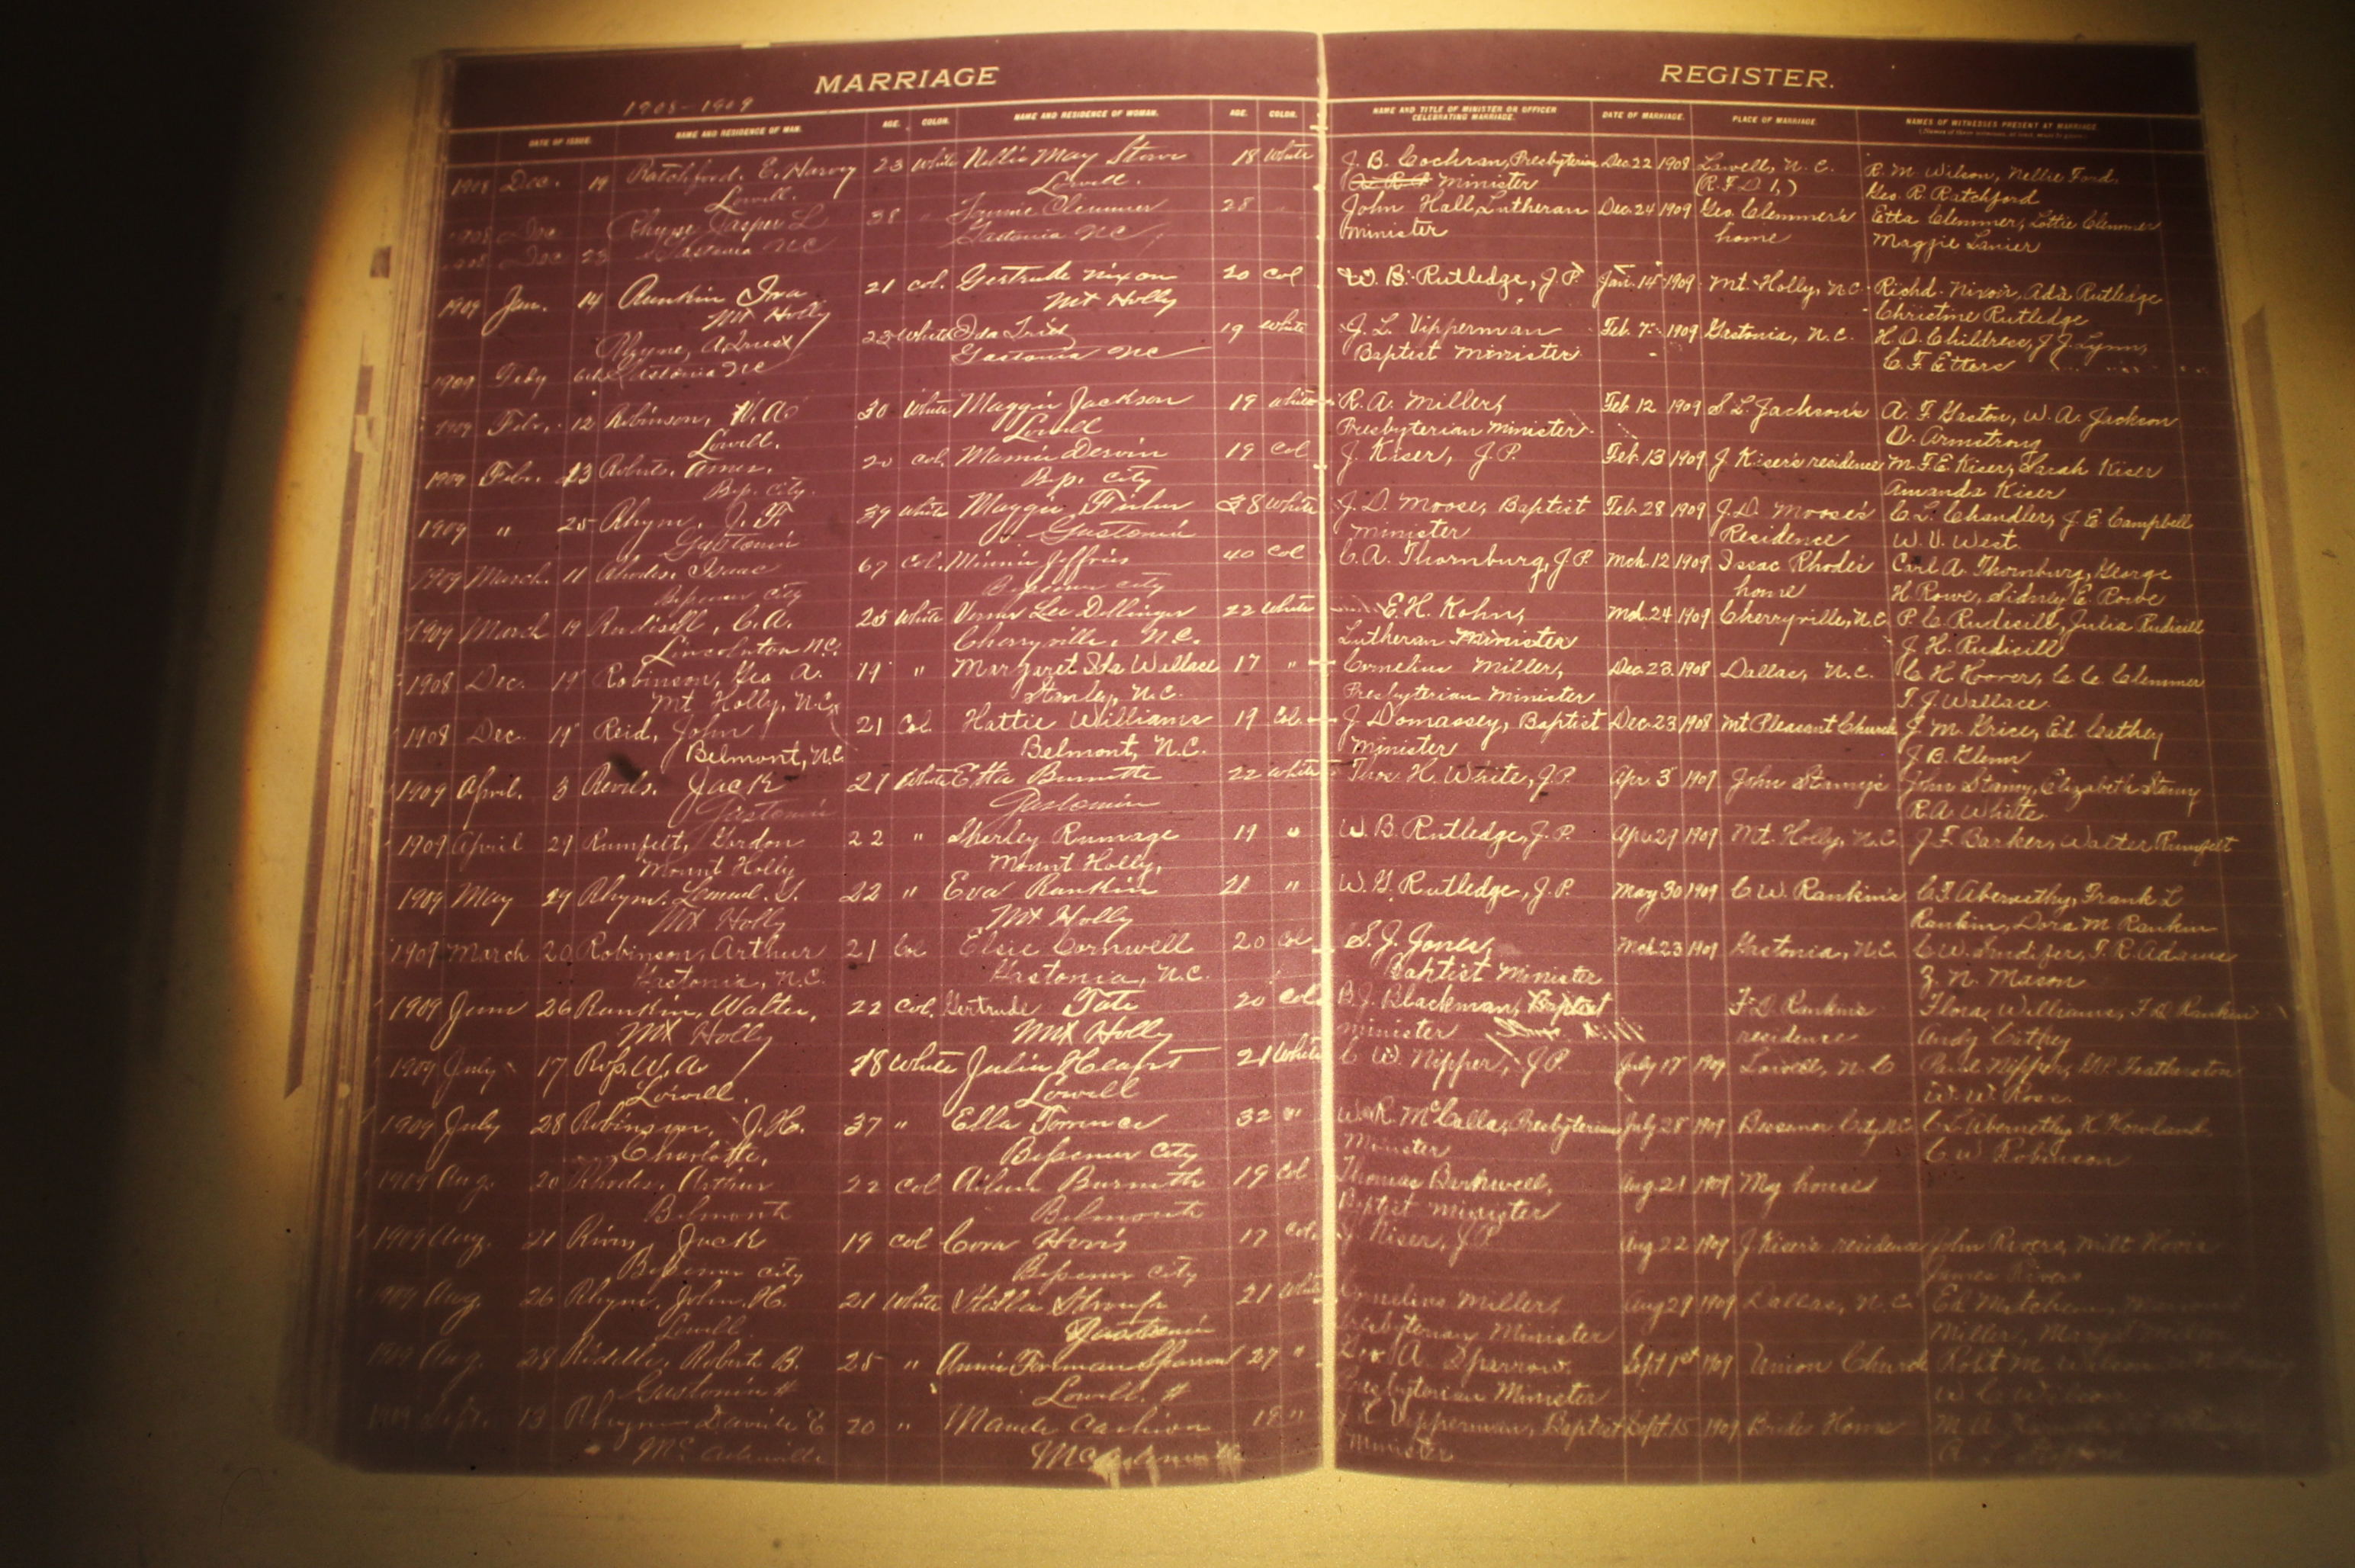 MARRIAGE
REGISTER.
1908-1909
DATE OF ISSUE. NAME AND RESIDENCE OF MAN. AGE. COLOR. NAME AND RESIDENCE OF WOMAN. AGE. COLOR. NAME AND TITLE OF MINISTER OR OFFICER CELEBRATING MARRIAGE. DATE OF MARRIAGE. PLACE OF MARRIAGE. NAMES OF WITNESSES PRESENT AT MARRIAGE.
1908 Dec. 19 Ratchford, E. Harvey 23 White Nellie May Stowe 18 White J. B. Cochran, Presbyterian Dec. 22 1908 Lowell, N. C. R. M. Wilson, Nellie Ford,
Lowell. Lowell. Minister (R.F.D 1,) Geo. R. Ratchford
1908 Dec Rhyne Jasper L 38 " Clemmer 28 John Hall Lutheran Dec. 24 1909 Geo. Clemmer's Etta Clemmer, Lottie Clemmer
1908 Dec 23 Gastonia NC Gastonia NC minister home Maggie Lanier
1909 Jan. 14 Rankin Ira 21 col. Gertrude Nixon 20 col W. B. Rutledge, J. P. Jan. 14 1909 Mt. Holly, N.C. Richd. Nixon, Ada Rutledge
Mt Holly Mt Holly Christine Rutledge
Rhyne, 23 White Ida 19 White J. L. Vipperman Feb. 7 1909 Gastonia, N.C. H. D. Childress, J J Lynn,
1909 Feby 6th Gastonia NC Gastonia NC Baptist Minister C. F. Etters
1909 Febr. 12 Robinson, W. A. 30 White Maggie Jackson 19 White R. A. Miller, Feb. 12 1909 S. L. Jackson's A. F. Gaston, W. A. Jackson
Lowell. Lowell Presbyterian Minister D. Armstrong
1909 Febr. 13 Roberts, Amos. 20 col. Mamie 19 Col J. Kiser, J.P. Feb. 13 1909 J Kiser's residence M. F. E. Kiser, Sarah Kiser
Bep. City. Bp. City Amanda Kiser
1909 " 25 Rhyne, J. F. 39 White Maggie 38 White J. D. Moose, Baptist Feb. 28 1909 J. D. Moose's C. L. Chandler, J E Campbell
Gastonia Gastonia minister Residence W. V. West.
1909 March. 11 Rhodes, Isaac 67 Col. Minnie Jeffries 40 Col C. A. Thornburg, J. P. Mch. 12 1909 Issac Rhodes Carl A. Thornburg, George
Bessemer City Bessemer City home H Rowe, Sidney E. Rowe
1909 March 19 Rudisill, C. A. 25 White Verner Lee Dellinger 22 White E. H. Kohn, Mch. 24 1909 Cherryville, N.C. P. C. Rudisill, Julia Rudisill
Lincolnton N.C. Cherryville, N.C. Lutheran Minister J. H. Rudisill
1908 Dec. 19 Robinson, Geo A. 19 " Margaret Ida Wallace 17 " Cornelius Miller, Dec. 23. 1908 Dallas, N.C. C H Hoover, C C Clemmer
Mt Holly, N.C. Stanley, N.C. Presbyterian Minister T. J. Wallace.
1908 Dec. 19 Reid, John 21 Col. Hattie Williams 19 Col. J. Domassey, Baptist Dec. 23 1908 Mt Pleasant Church J. M. Grice, Ed Cathey
Belmont, N.C. Belmont, N.C. minister J. B. Glenn
1909 April. 3 Revels. Jack 21 White Etta Burnette 22 White Thos. H. White, J.P. Apr. 3 1909 John Stamy's John Stamy, Elizabeth Stamy
Gastonia Gastonia R. A. White.
1909 April 29 Rumfelt, Gordon 22 " Sherley Rumage 19 " W. B. Rutledge, J. P. Apr. 29 1909 Mt. Holly, N.C. J. F. Barker, Walter Rumfelt
Mount Holly Mount Holly,
1909 May 29 Rhyne, Lemuel. S. 22 " Eva Rankin 21 " Rutledge, J. P. May 30 1909 C W. Rankin's C. F. Abernethy, Frank L
Mt Holly Mt Holly Rankin, Dora M Rankin
1909 March 20 Robinson, Arthur 21 Col Elsie Cornwell 20 Col S. J. Jones, Mch. 23 1909 Gastonia, N.C. C W. T. R. Adams
Gastonia, N.C. Gastonia, N.C. Baptist Minister Z. N. Mason
1909 June 26 Rankin, Walter, 22 Col. Gertrude Tate 20 Col. B. J. Blackman, Baptist F. D. Rankin's Flora Williams, F D Rankin
Mt Holly Mt Holly minister residence Andy Cathey
1909 July 17 W. A. 18 White Julia 21 White C W. Nipper, J.P. July 17 1909 Lowell, N. C Nipper, Featherston
Lowell. Lowell W. W. Ross.
1909 July 28 Robinson, J. H. 37 " Ella Torrence 32 " W. R. McCalla, Presbyterian July 28 1909 Bessemer City, N.C. C L Abernethy, H Howland
Charlotte, Bessemer City Minister C W Robinson
1909 Aug. 20 Rhodes, Arthur 22 Col 19 Col Thomas Aug. 21 1909 My house
Belmont Belmont Baptist minister
1909 Aug. 21 Jack 19 Col Cora 17 Col. J. Kiser, J.P. Aug 22 1909 J Kiser's residence John Rivers, Milt
Bessemer City Bessemer City James Rivers
1909 Aug. 26 Rhyne, John. H. 21 White Stella Stroup 21 White Cornelius Miller, Aug 29 1909 Dallas, N.C. Ed
Lowell Gastonia Presbyterian Minister Miller,
1909 Aug. 28 Riddle, Robert B. 25 " Annie Sparrow 27 " Geo. A. Sparrow, Sept 1st 1909 Union Church Robt M. Wilson
Gastonia # Lowell. # Presbyterian Minister W. C. Wilson
1909 Sept. 13 Rhyne 20 " Maude Cashion 18 " J L Vipperman, Baptist Sept. 15 1909 Brides Home M. A.
Minister A. L.